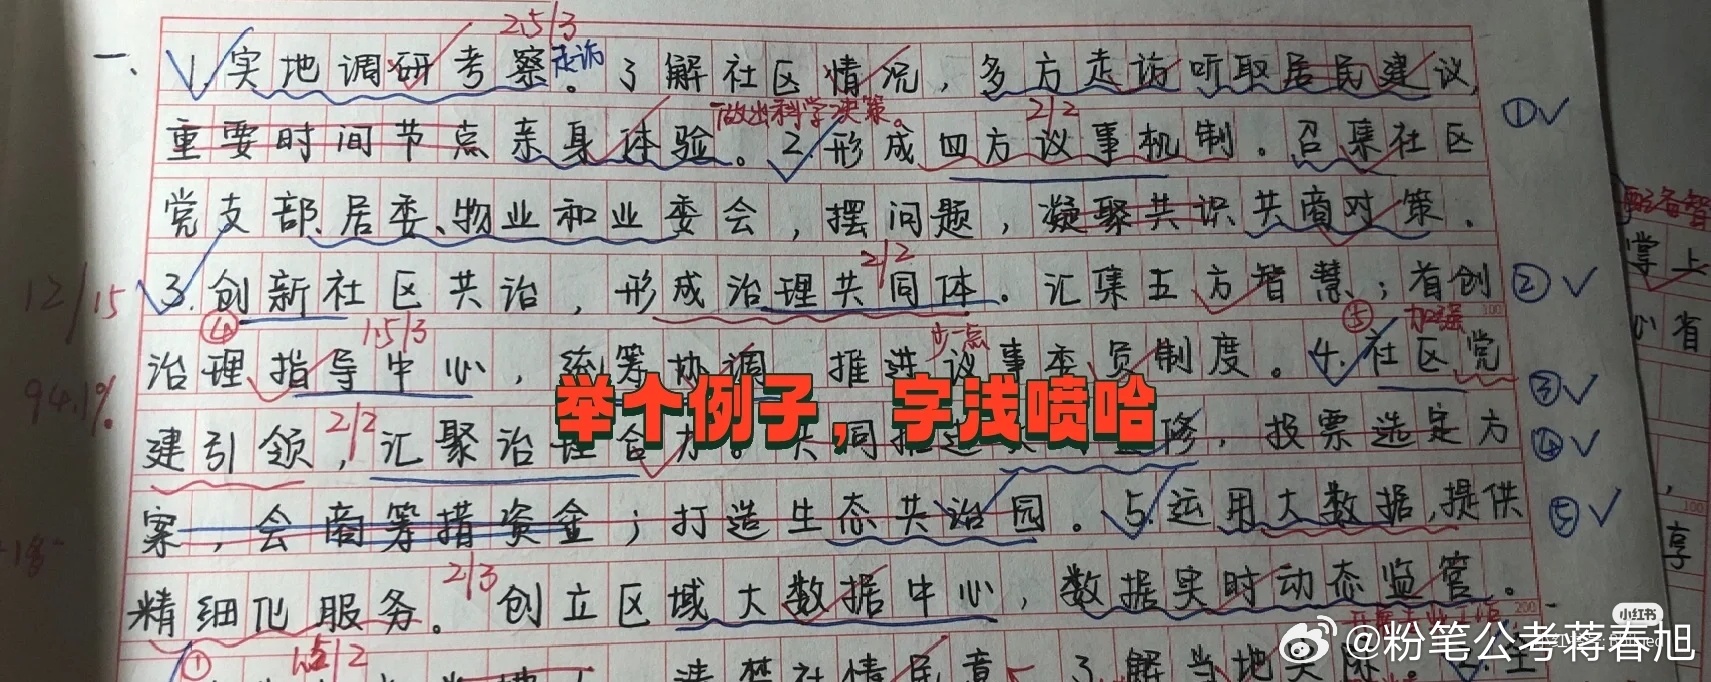 2.5/3
一、1.实地调研考察走访。了解社区情况,多方走访听取居民建议,
做出科学决策。 2/2 ①✓
重要时间节点亲身体验。2.形成四方议事机制。召集社区
党支部、居委、物业和业委会,摆问题,凝聚共识共商对策.
2/2
12/15
3.创新社区共治,形成治理共同体。汇集五方智慧;首创 ②✓
④ 1.5/3 步一点 ⑤ 加强 100
治理指导中心,统筹协调,推进议事委员制度。4.社区党 ③✓
94.1%
举个例子,字浅喷哈
建引领,2/2 汇聚治理合 修,投票选定方 ④✓
案,会商筹措资金;打造生态共治园。5.运用大数据,提供 ⑤✓
精细化服务。2/3 创立区域大数据中心,数据实时动态监管。
200
① 2
解当地实
掌上
省
100
享
小红书
@粉笔公考蒋春旭